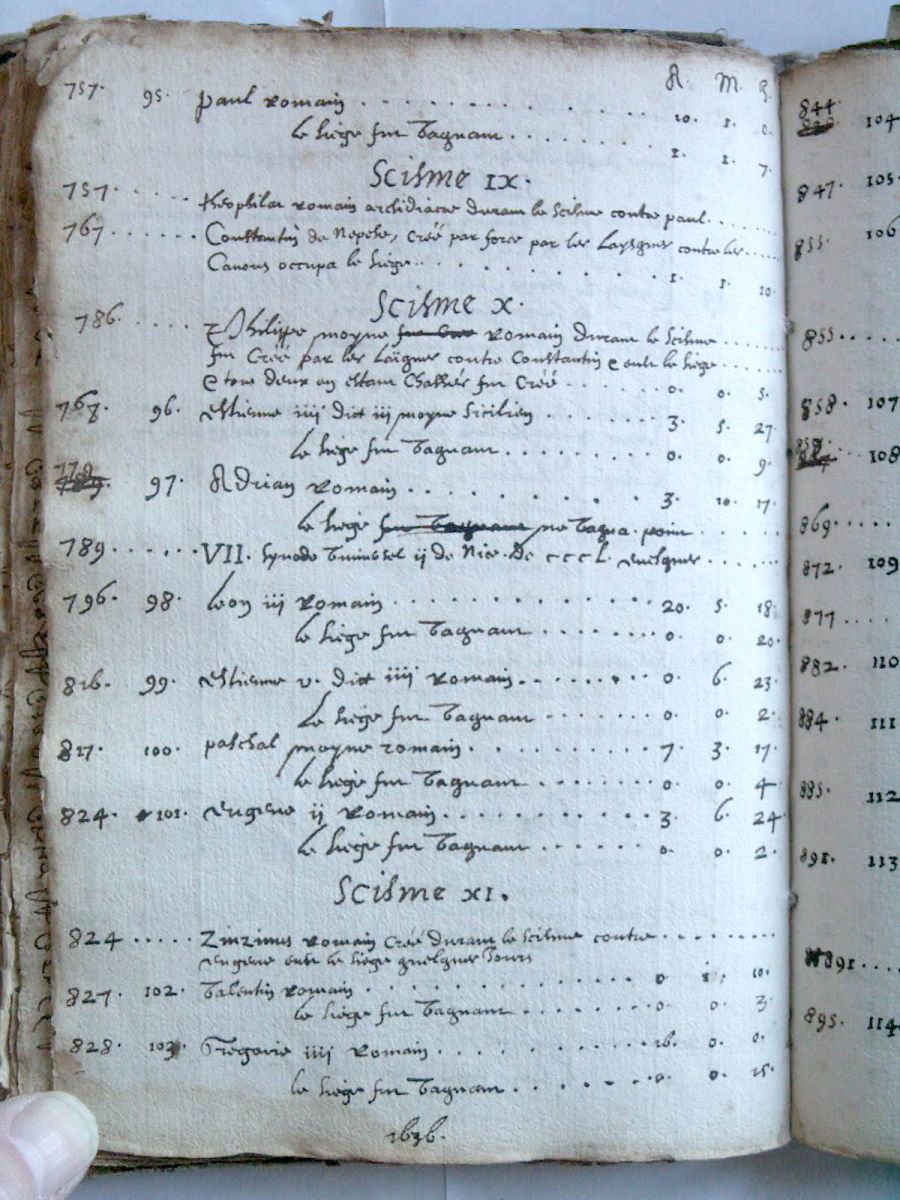 A. M. J.
757. 95. paul Romain . . . . . . . . . 10. 1. 0.
le siege fut vaquant . . . . . . 1. 1. 7.
Scisme IX.
757. . . . . theophilat romain archidiacre durant le scisme contre paul. . .
767. . . . . . . Constantin de Nepese, Créé par force par les Laysques contre les . . . .
Canons occupa le siège. . . . . . . . . 1. 1. 10.
Scisme X.
786. . . . . . Philippe moyne Romain durant le scisme . . . .
fut Créé par les Laïques contre Constantin e eut le siège . . . .
e tous deux en estant Chassés fut Créé . . . . . . 0. 0. 5.
768. 96. Estienne iiij dict iij moyne Sicilien . . . . . . 3. 5. 27.
le siege fut vaquant . . . . . . . . 0. 0. 9.
772 97. Adrian Romain . . . . . . . . 3. 10. 17.
le siege fut vaquant ne vaqua point . . . . .
789. . . . . . . VII. Synode vniversel ij de Nice. De CCCL. evesques . . . . . .
796. 98. Leon iij Romain . . . . . . . . . . . 20. 5. 18.
le siège fut vaquant . . . . . . . 0. 0. 20.
816. 99. Estienne v. dict iiij Romain . . . . . . . 0. 6. 23.
Le siege fut vaquant . . . . . . 0. 0. 2.
817. 100. paschal moyne romain. . . . . . . . . 7. 3. 17.
le siege fut vaquant . . . . . . . 0. 0. 4.
824. 101. Eugene ij Romain . . . . . . . . . 3. 6. 24.
le siège fut vaquant . . . . . . . 0. 0. 2.
Scisme XI.
824 . . . . . Zinzinus Romain Créé durant le Scisme contre . . . . . . .
Eugene eut le siege quelques Jours
827. 102. Valentin romain . . . . . . . . . . 0. 1. 10.
le siege fut vaquant . . . . . . . 0. 0. 3.
828. 103. Gregoire iiij Romain . . . . . . . . 16. 0. 0.
le siege fut vaquant . . . . . . . 0. 0. 15.
1636.
844. 104
847. 105.
855. 106
855. . . . .
858. 107
858. 108
869. . . .
872. 109
877 . . . .
882. 110
884. 111
885. 112
891. 113
891. . . .
895. 114